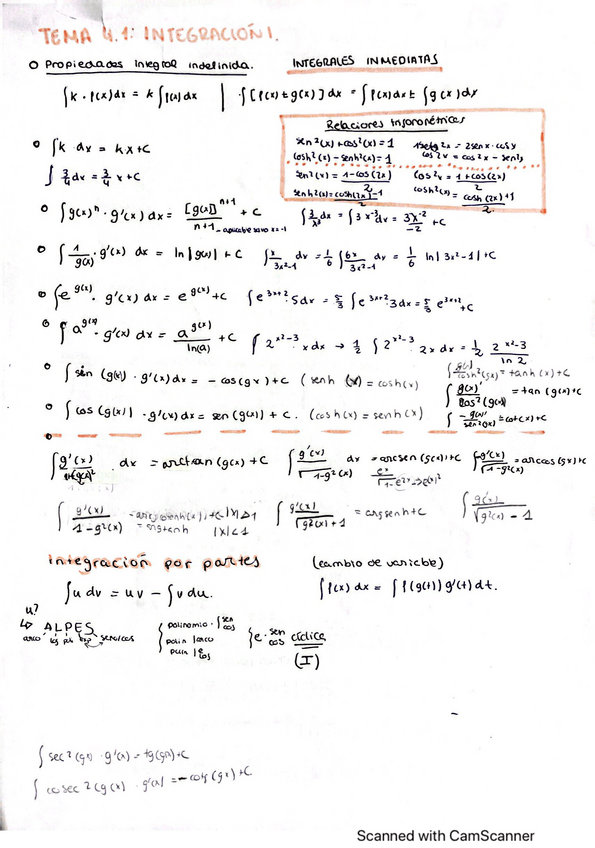 TEMA 4.1: INTEGRACIÓN I.
O Propiedades Integral indefinida. INTEGRALES INMEDIATAS
∫k · f(x)dx = k ∫f(x)dx | ∫[f(x) ± g(x)]dx = ∫f(x)dx ± ∫g(x)dx
Relaciones trigonométricas
sen²(x) + cos²(x) = 1
cos 2x = cos²x - sen²x
cosh²(x) - senh²(x) = 1
sen²(x) = 1 - cos(2x) / 2 cos²x = 1 + cos(2x) / 2
senh²(x) = cosh(2x) - 1 / 2 cosh²(x) = cosh(2x) + 1 / 2
∫k dx = kx + C
∫ 3/4 dx = 3/4 x + C
∫g(x)^n · g'(x) dx = [g(x)]^(n+1) / n+1 + C ∫ 3/x³ dx = ∫3x^-3 dx = 3x^-2 / -2 + C
∫ 1/g(x) · g'(x) dx = ln|g(x)| + C ∫ x/3x²-1 dx = 1/6 ∫ 6x/3x²-1 dx = 1/6 ln|3x²-1| + C
∫e^g(x) · g'(x) dx = e^g(x) + C ∫e^3x+2 · 5dx = 5/3 ∫e^3x+2 3dx = 5/3 e^3x+2 + C
∫a^g(x) · g'(x) dx = a^g(x) / ln(a) + C ∫2^x²-3 · x dx → 1/2 ∫2^x²-3 · 2x dx = 1/2 2^x²-3 / ln 2
∫sin (g(x)) · g'(x)dx = -cos(gx) + C (senh (x) = cosh(x)
∫ g'(x) / cosh²(gx) = tanh(x) + C
∫ g(x)' / cos²(g(x)) = tan (g(x) + C
∫cos (g(x)) · g'(x)dx = sen (g(x)) + C. (cosh(x) = senh(x)
∫ -g(x)' / sen²(gx) = cot(x) + C
∫ g'(x) / 1+(g(x))² · dx = arctan (g(x) + C ∫ g'(x) / √1-g²(x) dx = arcsen (g(x)) + C ∫ -g'(x) / √1-g²(x) = arccos (gx) + C
e^x / √1-e^2x → (e^x)²
∫ g'(x) / 1-g²(x) |x|<1 ∫ g'(x) / √g²(x)+1 = argsenh + C ∫ g'(x) / √g²(x) - 1
integración por partes (cambio de variable)
∫u dv = uv - ∫v du. ∫f(x) dx = ∫f(g(t)) g'(t) dt.
u?
↳ ALPES
arco log pol exp sen/cos
polinomio · sen cos
polin arco
polin e cos
e · sen cos cíclica
(I)
∫sec²(gx) · g'(x) = tg(gx) + C
∫cosec²(g(x) · g'(x) = -cotg (gx) + C
Scanned with CamScanner